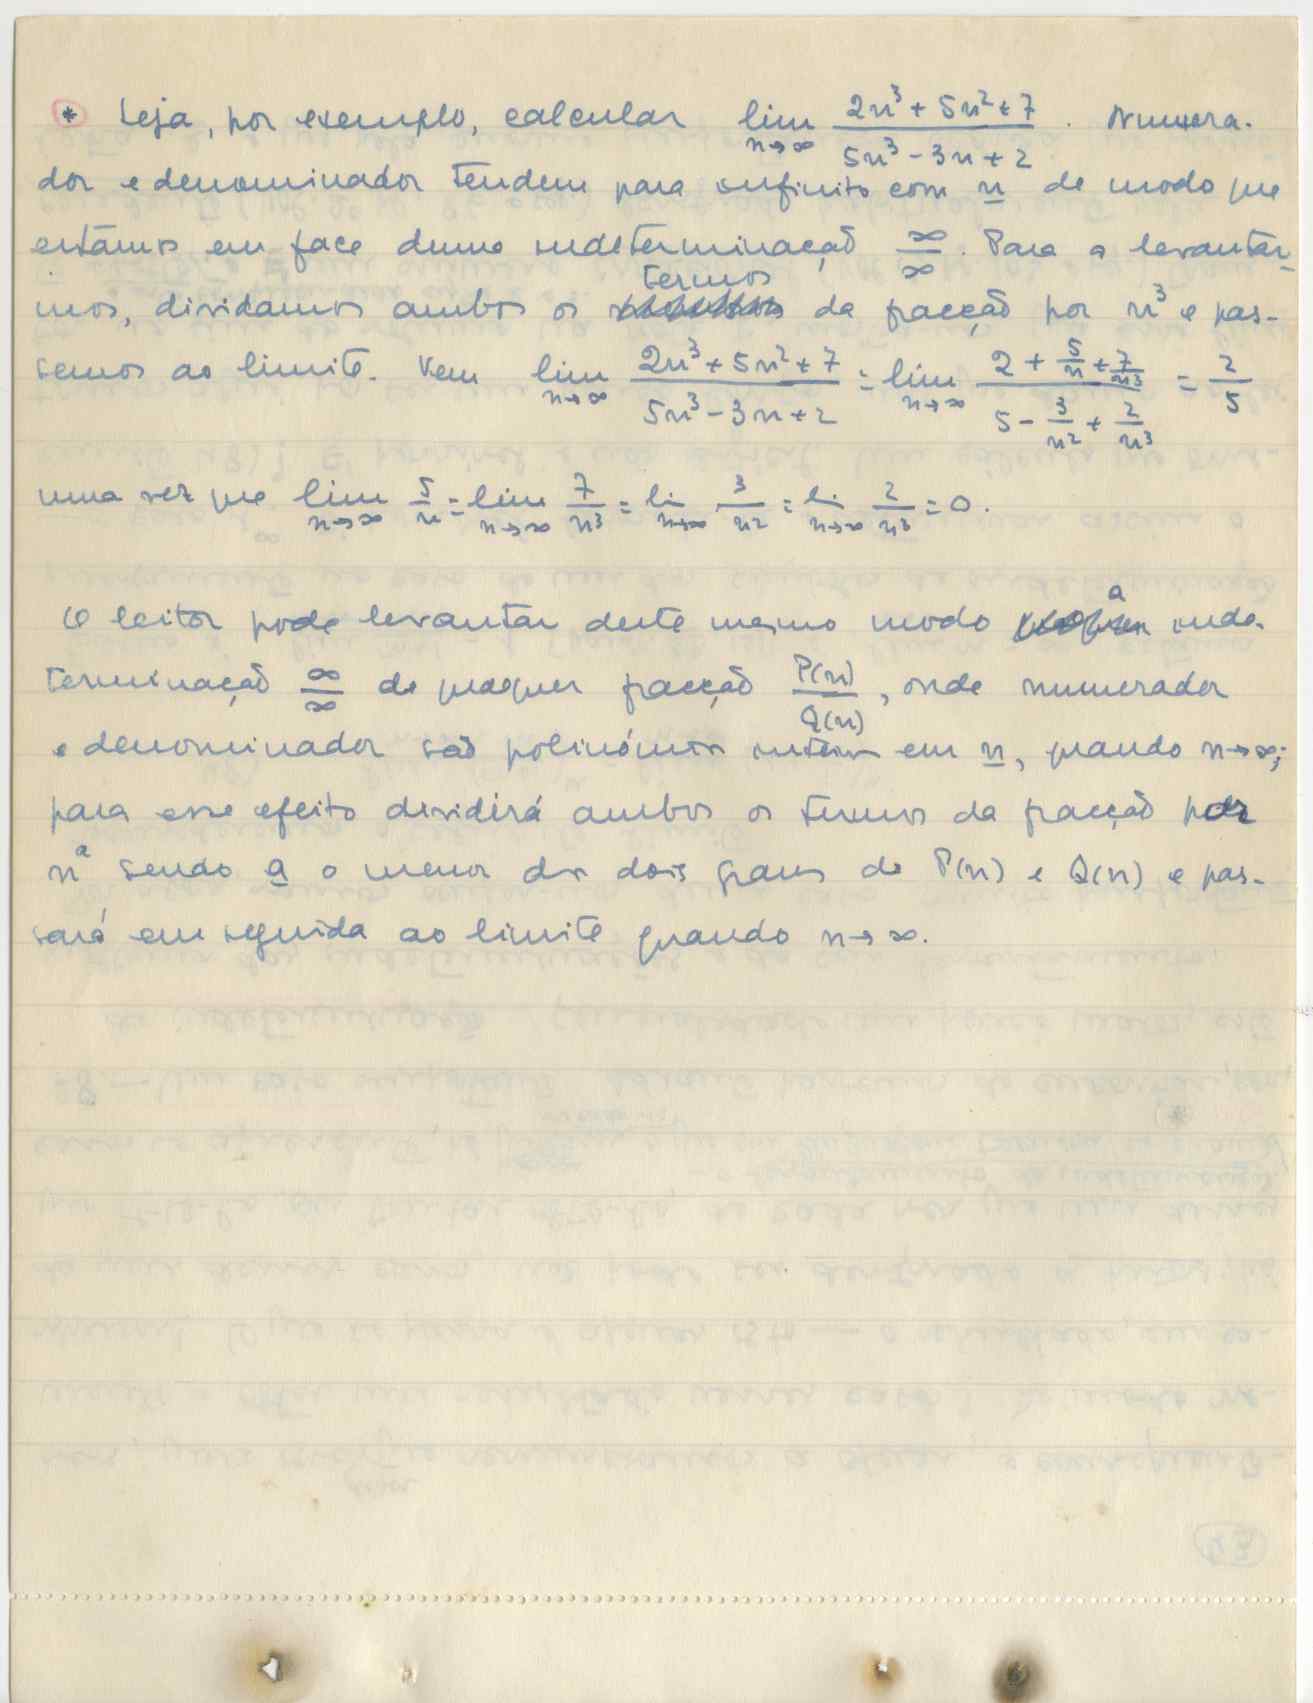 * Seja, por exemplo, calcular lim n→∞ (2n³ + 5n² + 7)/(5n³ - 3n + 2). Numera-
dor e denominador tendem para infinito com n de modo que
estamos em face duma indeterminação ∞/∞. Para a levantar-
mos, dividamos ambos os termos da fracção por n³ e pas-
semos ao limite. Vem lim n→∞ (2n³ + 5n² + 7)/(5n³ - 3n + 2) = lim n→∞ (2 + 5/n + 7/n³)/(5 - 3/n² + 2/n³) = 2/5
uma vez que lim n→∞ 5/n = lim n→∞ 7/n³ = li n→∞ 3/n² = li n→∞ 2/n³ = 0.
O leitor pode levantar deste mesmo modo a inde-
terminação ∞/∞ de qualquer fracção P(n)/Q(n), onde numerador
e denominador são polinómios inteiros em n, quando n→∞;
para esse efeito dividirá ambos os termos da fracção por
nᵃ sendo a o menor dos dois graus de P(n) e Q(n) e pas-
sará em seguida ao limite quando n→∞.